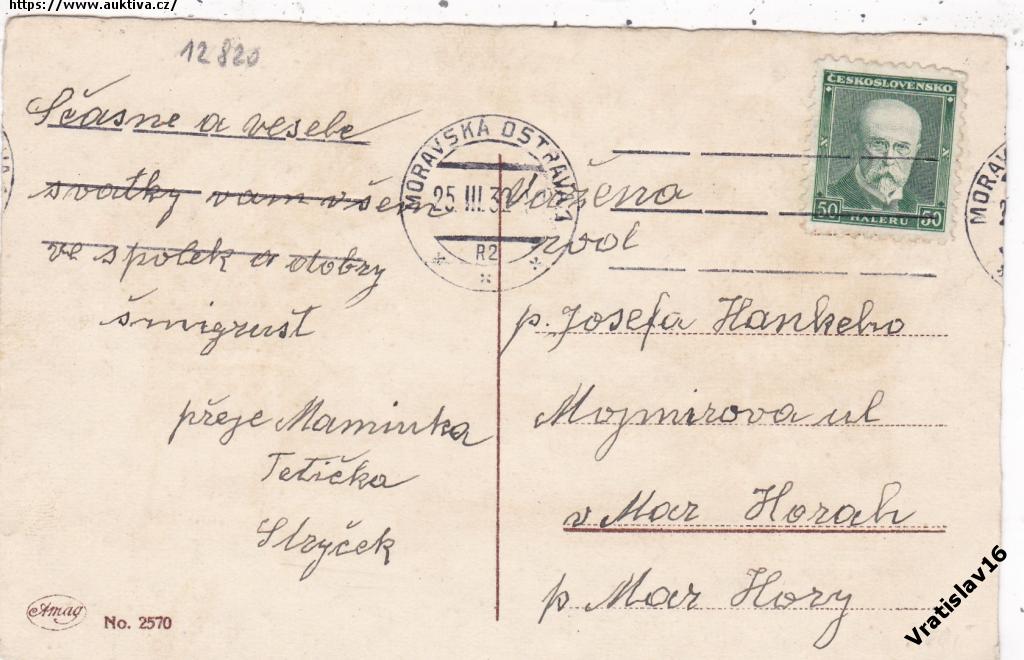 https://www.auktiva.cz/
12820
Sčasne a vesele
svatky vam všem
ve spolek a dobry
šmigrust
přeje Maminka
Tetička
Stryček
Amag
No. 2570
MORAVSKÁ OSTRAVA 1
25. III. 32
R2
ČESKOSLOVENSKO
50 HALÉŘŮ 50
MORAV
Važena
rod
p. Josefa Hankeho
Mojmirova ul
v Mar Horah
p Mar Hory
Vratislav16